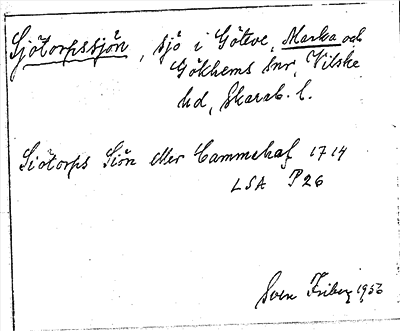 Sjötorpssjön, sjö i Göteve, Marka och
Gökhems snr, Vilske
hd, Skarab. l.
Siötorps Siön eller Cammehaf 1714
LSA P26
Sven Friberg 1956